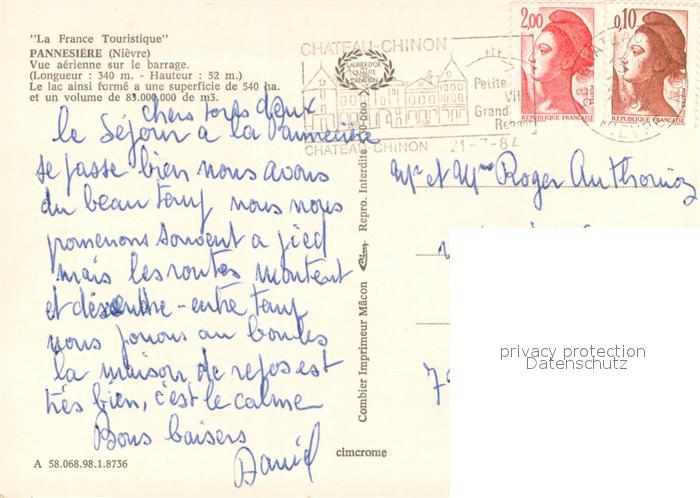 "La France Touristique"
PANNESIÈRE (Nièvre)
Vue aérienne sur le barrage.
(Longueur : 340 m. - Hauteur : 52 m.)
Le lac ainsi formé a une superficie de 540 ha.
et un volume de 83.000.000 de m3.
chers tous deux
le Séjour a la Pannecière
se passe bien nous avons
du beau temps nous nous
promenons souvent a pied
mais les routes montent
et descendre - entre temps
nous jouons au boules
la maison de repos est
très bien, c'est le calme
Bons baisers
Daniel
A 58.068.98.1.8736
cimcrome
Combier Imprimeur Mâcon Cim Repro. Interdite
CHATEAU-CHINON
LAURIER D'OR
QUALITE
Petite
Ville
Grand
Renom
CHATEAU-CHINON
21-7-84
2,00
POSTES
REPUBLIQUE FRANÇAISE
0,10
POSTES
REPUBLIQUE FRANÇAISE
Mr et Mme Roger Anthonioz
privacy protection
Datenschutz